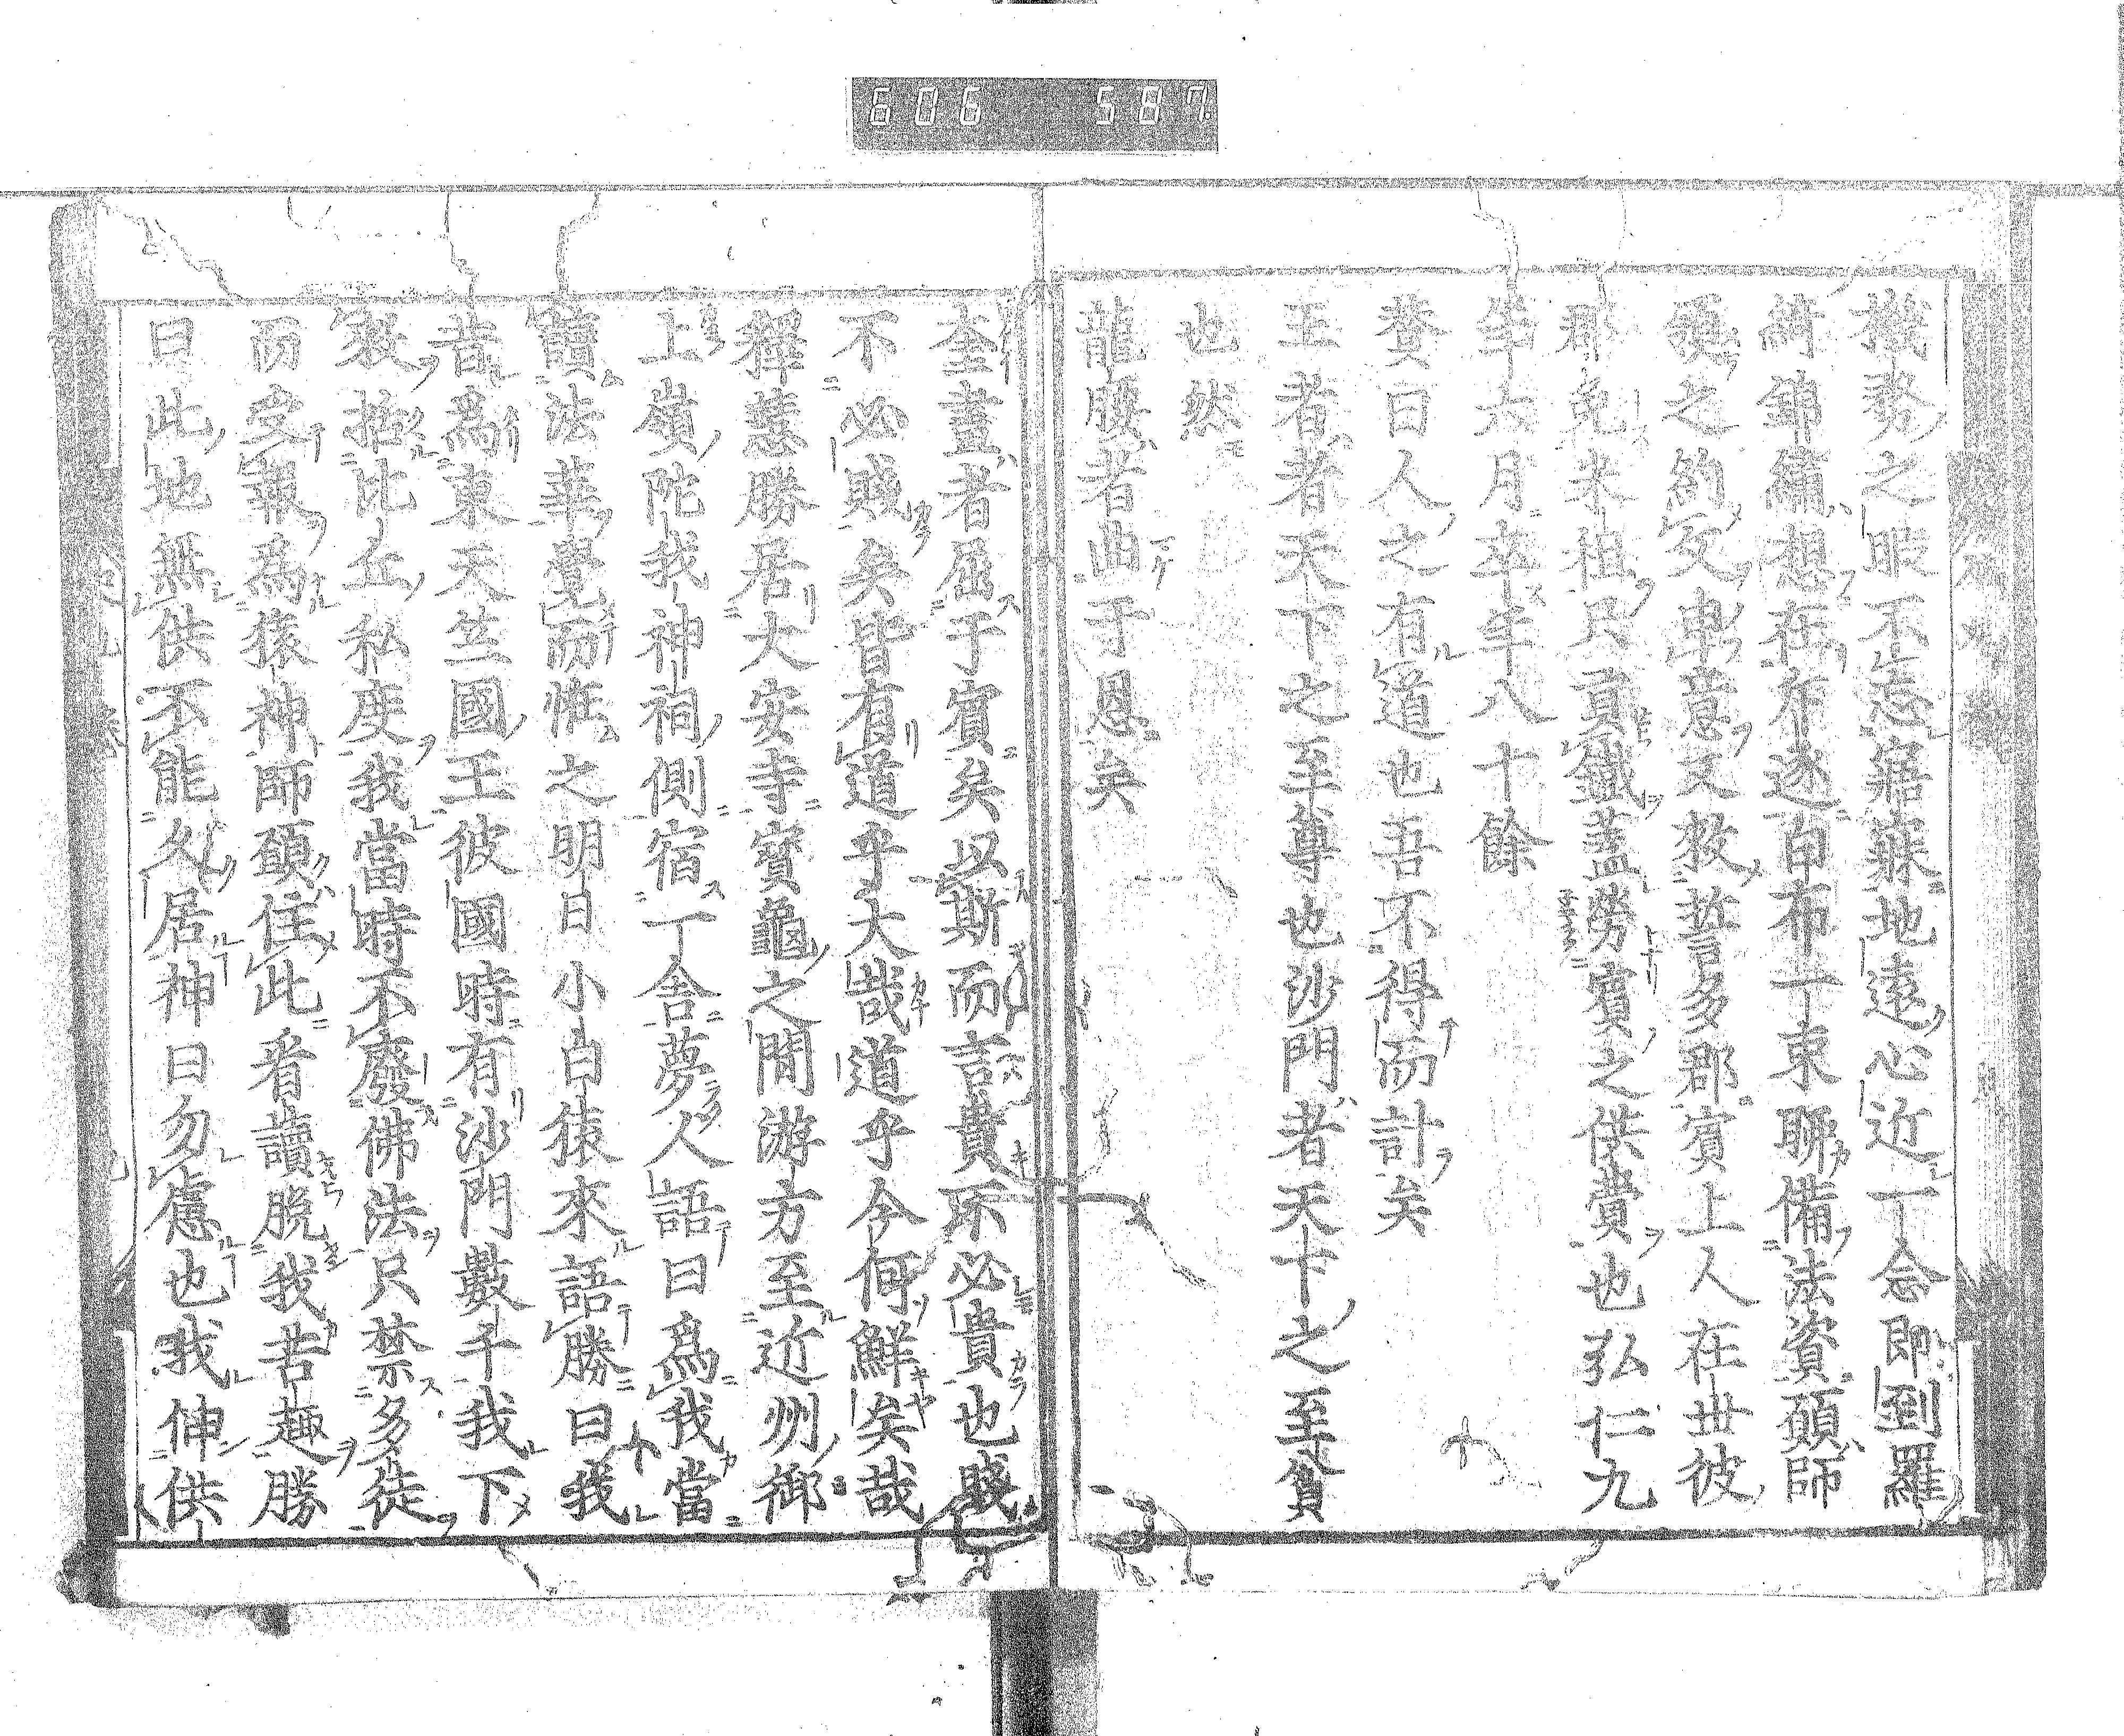 606 587
機務之暇不忘寤寐地遠心近一念即到羅
綺錦繡想在亦遂白布一束聊備法資願師
領之約文卑意又敕誓多郡賓上人在世彼
郡免米租只貢鐵盖勞賓之供費也弘仁九
年六月卒年八十餘
賛曰人之有道也吾不得而計矣
王者者天下之至尊也沙門者天下之至貧
也然
龍腰者曲于恩矣
奎畫者屈于賓矣以斯而言貴不必貴也賤
不必賤矣皆有道乎大哉道乎今何鮮矣哉
釋慧勝居大安寺寶龜之間游方至近州御
上嶺陀我神祠側宿一舍夢人語曰爲我當
讀法華覺而恠之明日小白猿來語勝曰我
昔爲東天竺國王彼國時有沙門數千我下
敕括比丘私度我當時不廢佛法只禁多徒
而受報爲猿神師頋住此看讀脫我苦趣勝
曰此地無供不能久居神曰勿慮也我伸供